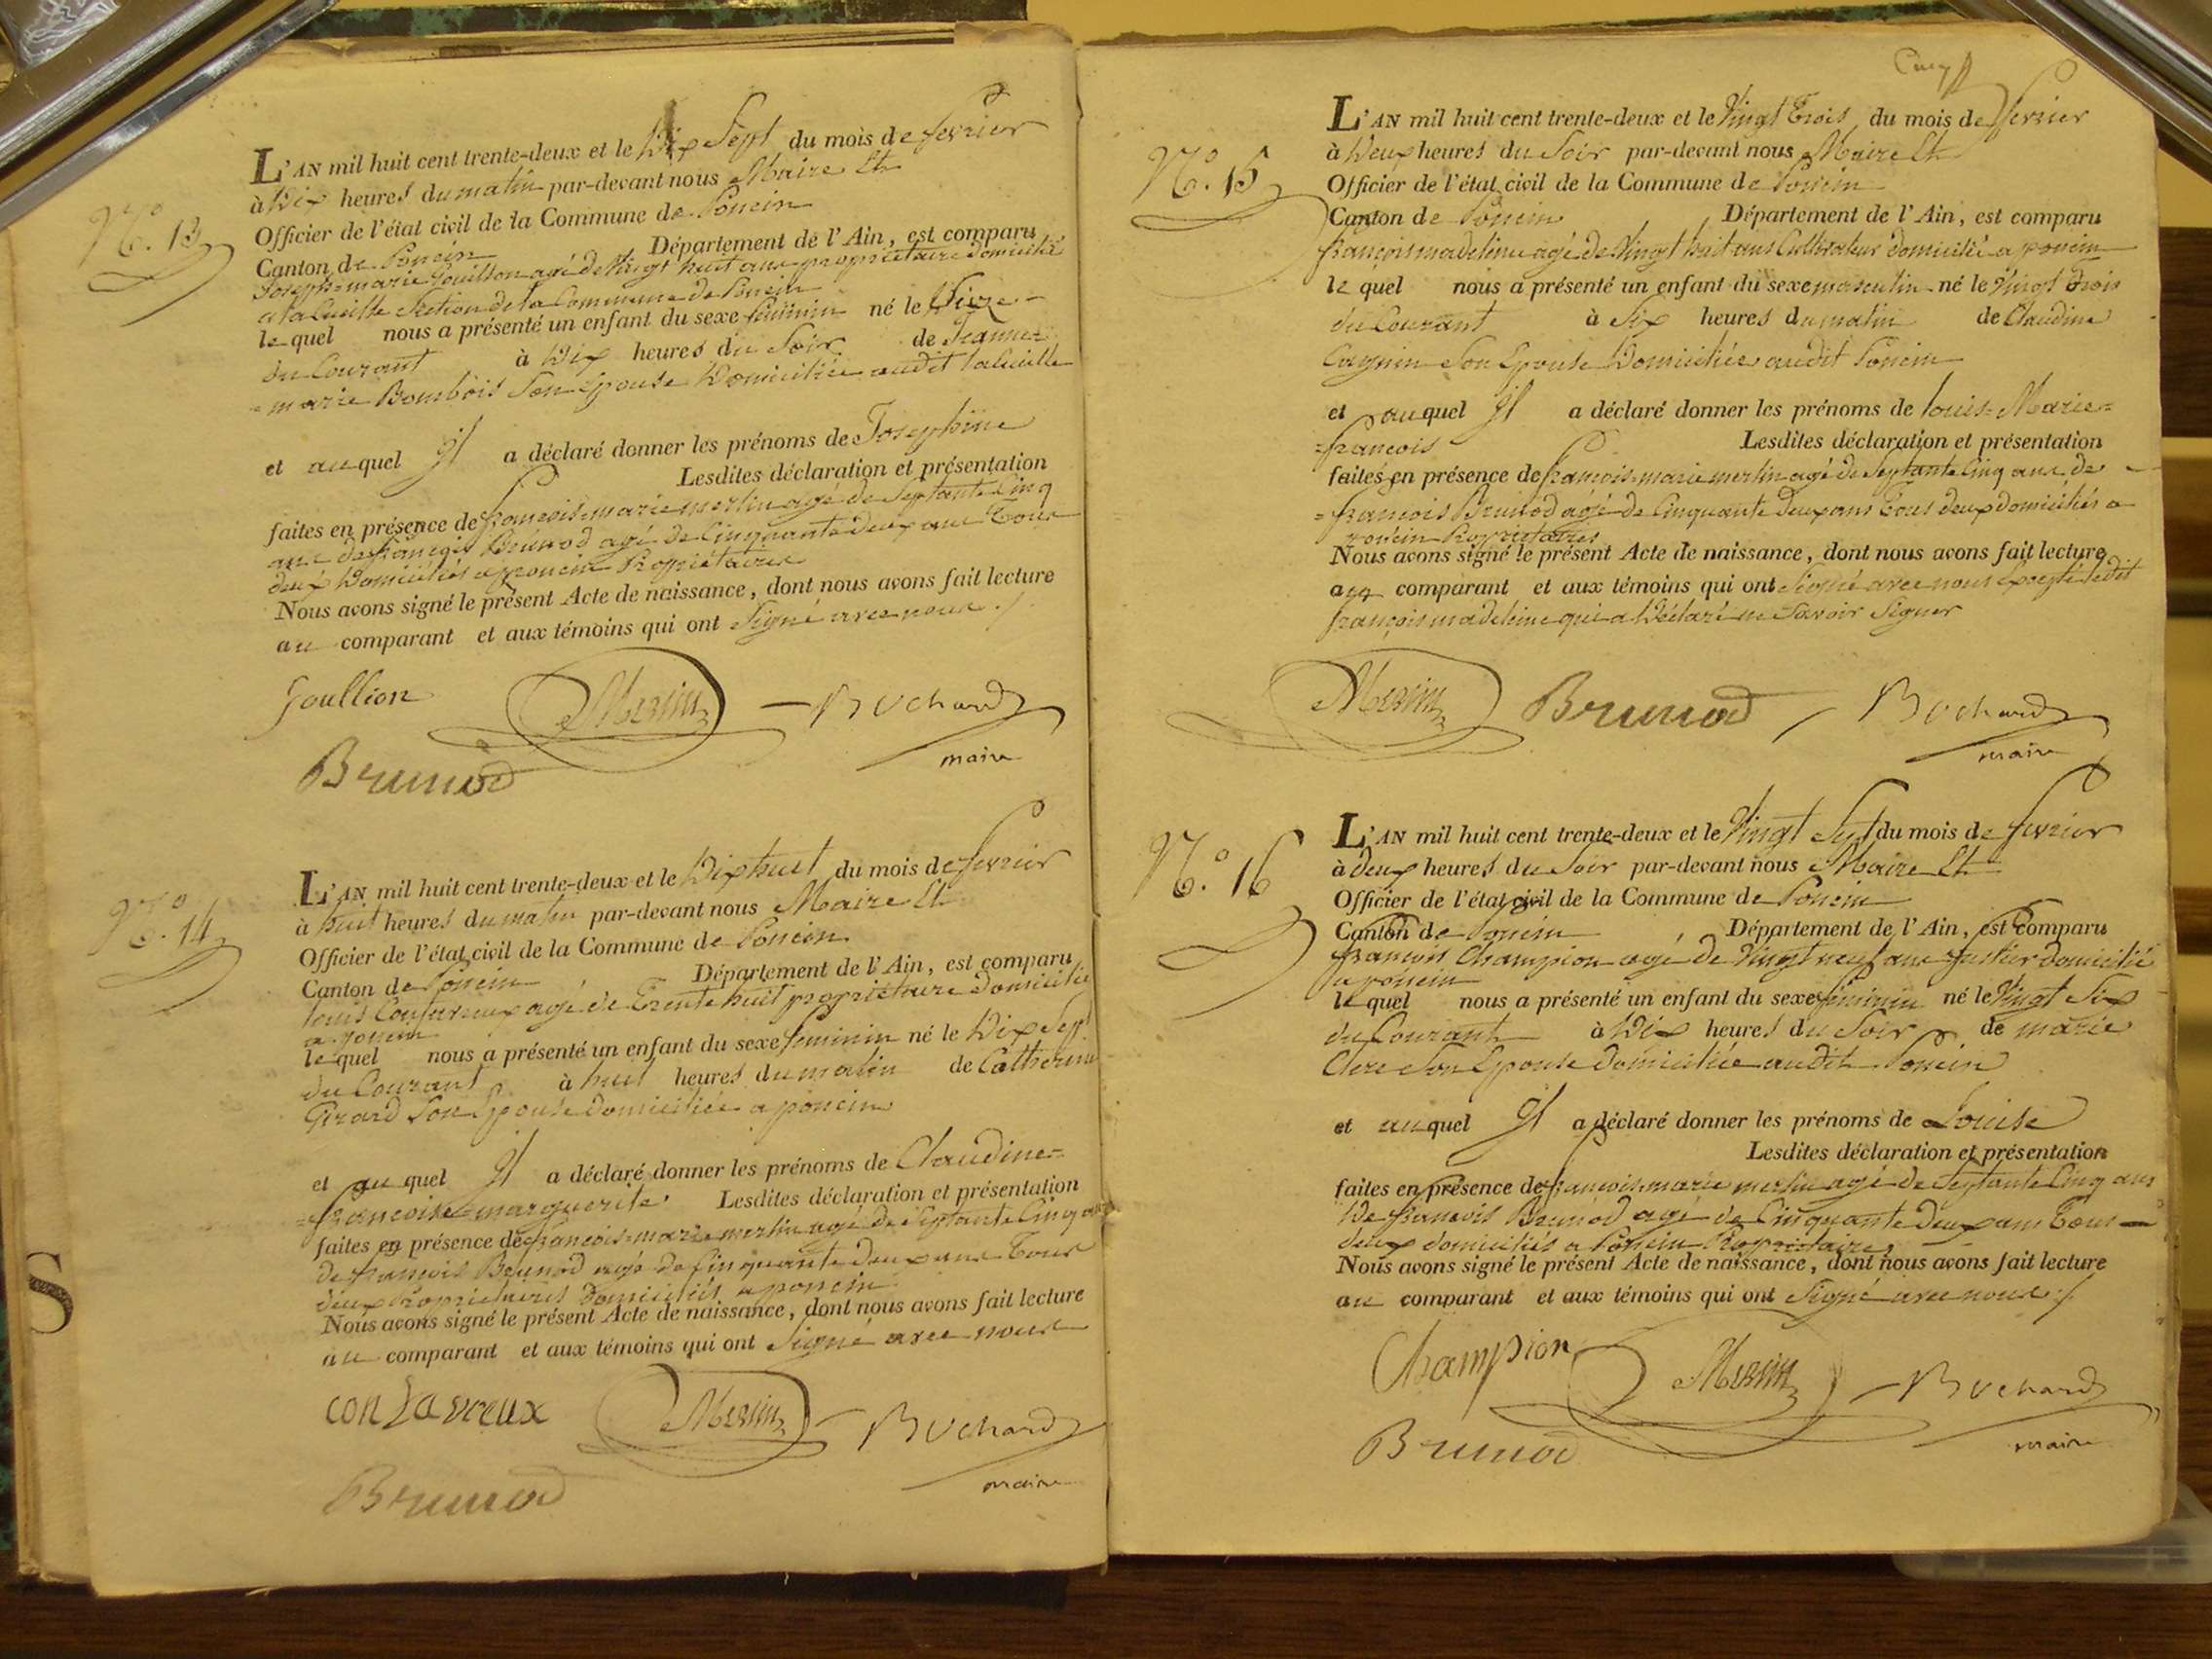 N.o 13
L'AN mil huit cent trente-deux et le Dix Sept du mois de fevrier
à Dix heures du matin par-devant nous Maire Et
Officier de l'état civil de la Commune de Poncin
Canton de Poncin Département de l'Ain, est comparu
Joseph=marie Gouillon agé de Vingt huit ans propriétaire domicilié
a la Cueille Section de la Commune de Poncin
le quel nous a présenté un enfant du sexe feminin né le
du Courant à Dix heures du Soir de Jeanne=
=marie Bombois Son Epouse Domiciliée audit lalueille
et au quel Il a déclaré donner les prénoms de Josephine
Lesdites déclaration et présentation
faites en présence de francois=marie merlin agé de Septante Cinq
ans de françois Brunod agé de Cinquante deux ans Tous
deux Domiciliés a poncin Propriétaires
Nous avons signé le présent Acte de naissance, dont nous avons fait lecture
au comparant et aux témoins qui ont Signé avec nous ./.
Goullion Merlin Bochard
maire
Brunod
N.o 14
L'AN mil huit cent trente-deux et le Dix huit du mois de fevrier
à huit heures du matin par-devant nous Maire Et
Officier de l'état civil de la Commune de Poncin
Canton de Poncin Département de l'Ain, est comparu
louis Contavreux agé de Trente huit propriétaire Domicilié
a poncin
le quel nous a présenté un enfant du sexe feminin né le Dix Sept
du Courant à huit heures du matin de Catherine
Girard Son Epouse Domiciliée a poncin
et au quel Il a déclaré donner les prénoms de Claudine=
=francoise=marguerite Lesdites déclaration et présentation
faites en présence de francois=marie merlin agé de Septante Cinq ans
de francois Brunod agé de Cinquante deux ans Tous
deux Propriétaires Domiciliés a poncin
Nous avons signé le présent Acte de naissance, dont nous avons fait lecture
au comparant et aux témoins qui ont Signé avec nous
contavreux Merlin Bochard
maire
Brunod
N.o 15
L'AN mil huit cent trente-deux et le Vingt Trois du mois de fevrier
à Deux heures du Soir par-devant nous Maire Et
Officier de l'état civil de la Commune de Poncin
Canton de Poncin Département de l'Ain, est comparu
françois madeleine agé de Vingt huit ans Cultivateur domicilié a poncin
le quel nous a présenté un enfant du sexe masculin né le Vingt Trois
du Courant à Six heures du matin de Claudine
Cagnin Son Epouse Domiciliée audit Poncin
et au quel Il a déclaré donner les prénoms de louis=Marie=
=francois Lesdites déclaration et présentation
faites en présence de francois=marie merlin agé de Septante Cinq ans de
=francois Brunod agé de Cinquante Deux ans Tous deux Domiciliés a
poncin Propriétaires
Nous avons signé le présent Acte de naissance, dont nous avons fait lecture
au comparant et aux témoins qui ont Signé avec nous Excepté ledit
françois madeleine qui a Déclaré ne Savoir Signer
Merlin Brunod Bochard
maire
N.o 16
L'AN mil huit cent trente-deux et le Vingt Sept du mois de fevrier
à deux heures du Soir par-devant nous Maire Et
Officier de l'état civil de la Commune de Poncin
Canton de Poncin Département de l'Ain, est comparu
francois Champion agé de Vingt neuf ans domicilié
a poncin
le quel nous a présenté un enfant du sexe feminin né le Vingt Six
du Courant à Dix heures du Soir de marie
Clerc Son Epouse Domiciliée audit Poncin
et au quel Il a déclaré donner les prénoms de Louise
Lesdites déclaration et présentation
faites en présence de francois=marie merlin agé de Septante Cinq ans
De francois Brunod agé de Cinquante Deux ans Tous
deux domiciliés a Poncin Propriétaires
Nous avons signé le présent Acte de naissance, dont nous avons fait lecture
au comparant et aux témoins qui ont Signé avec nous ./.
Champion Merlin Bochard
maire
Brunod
S